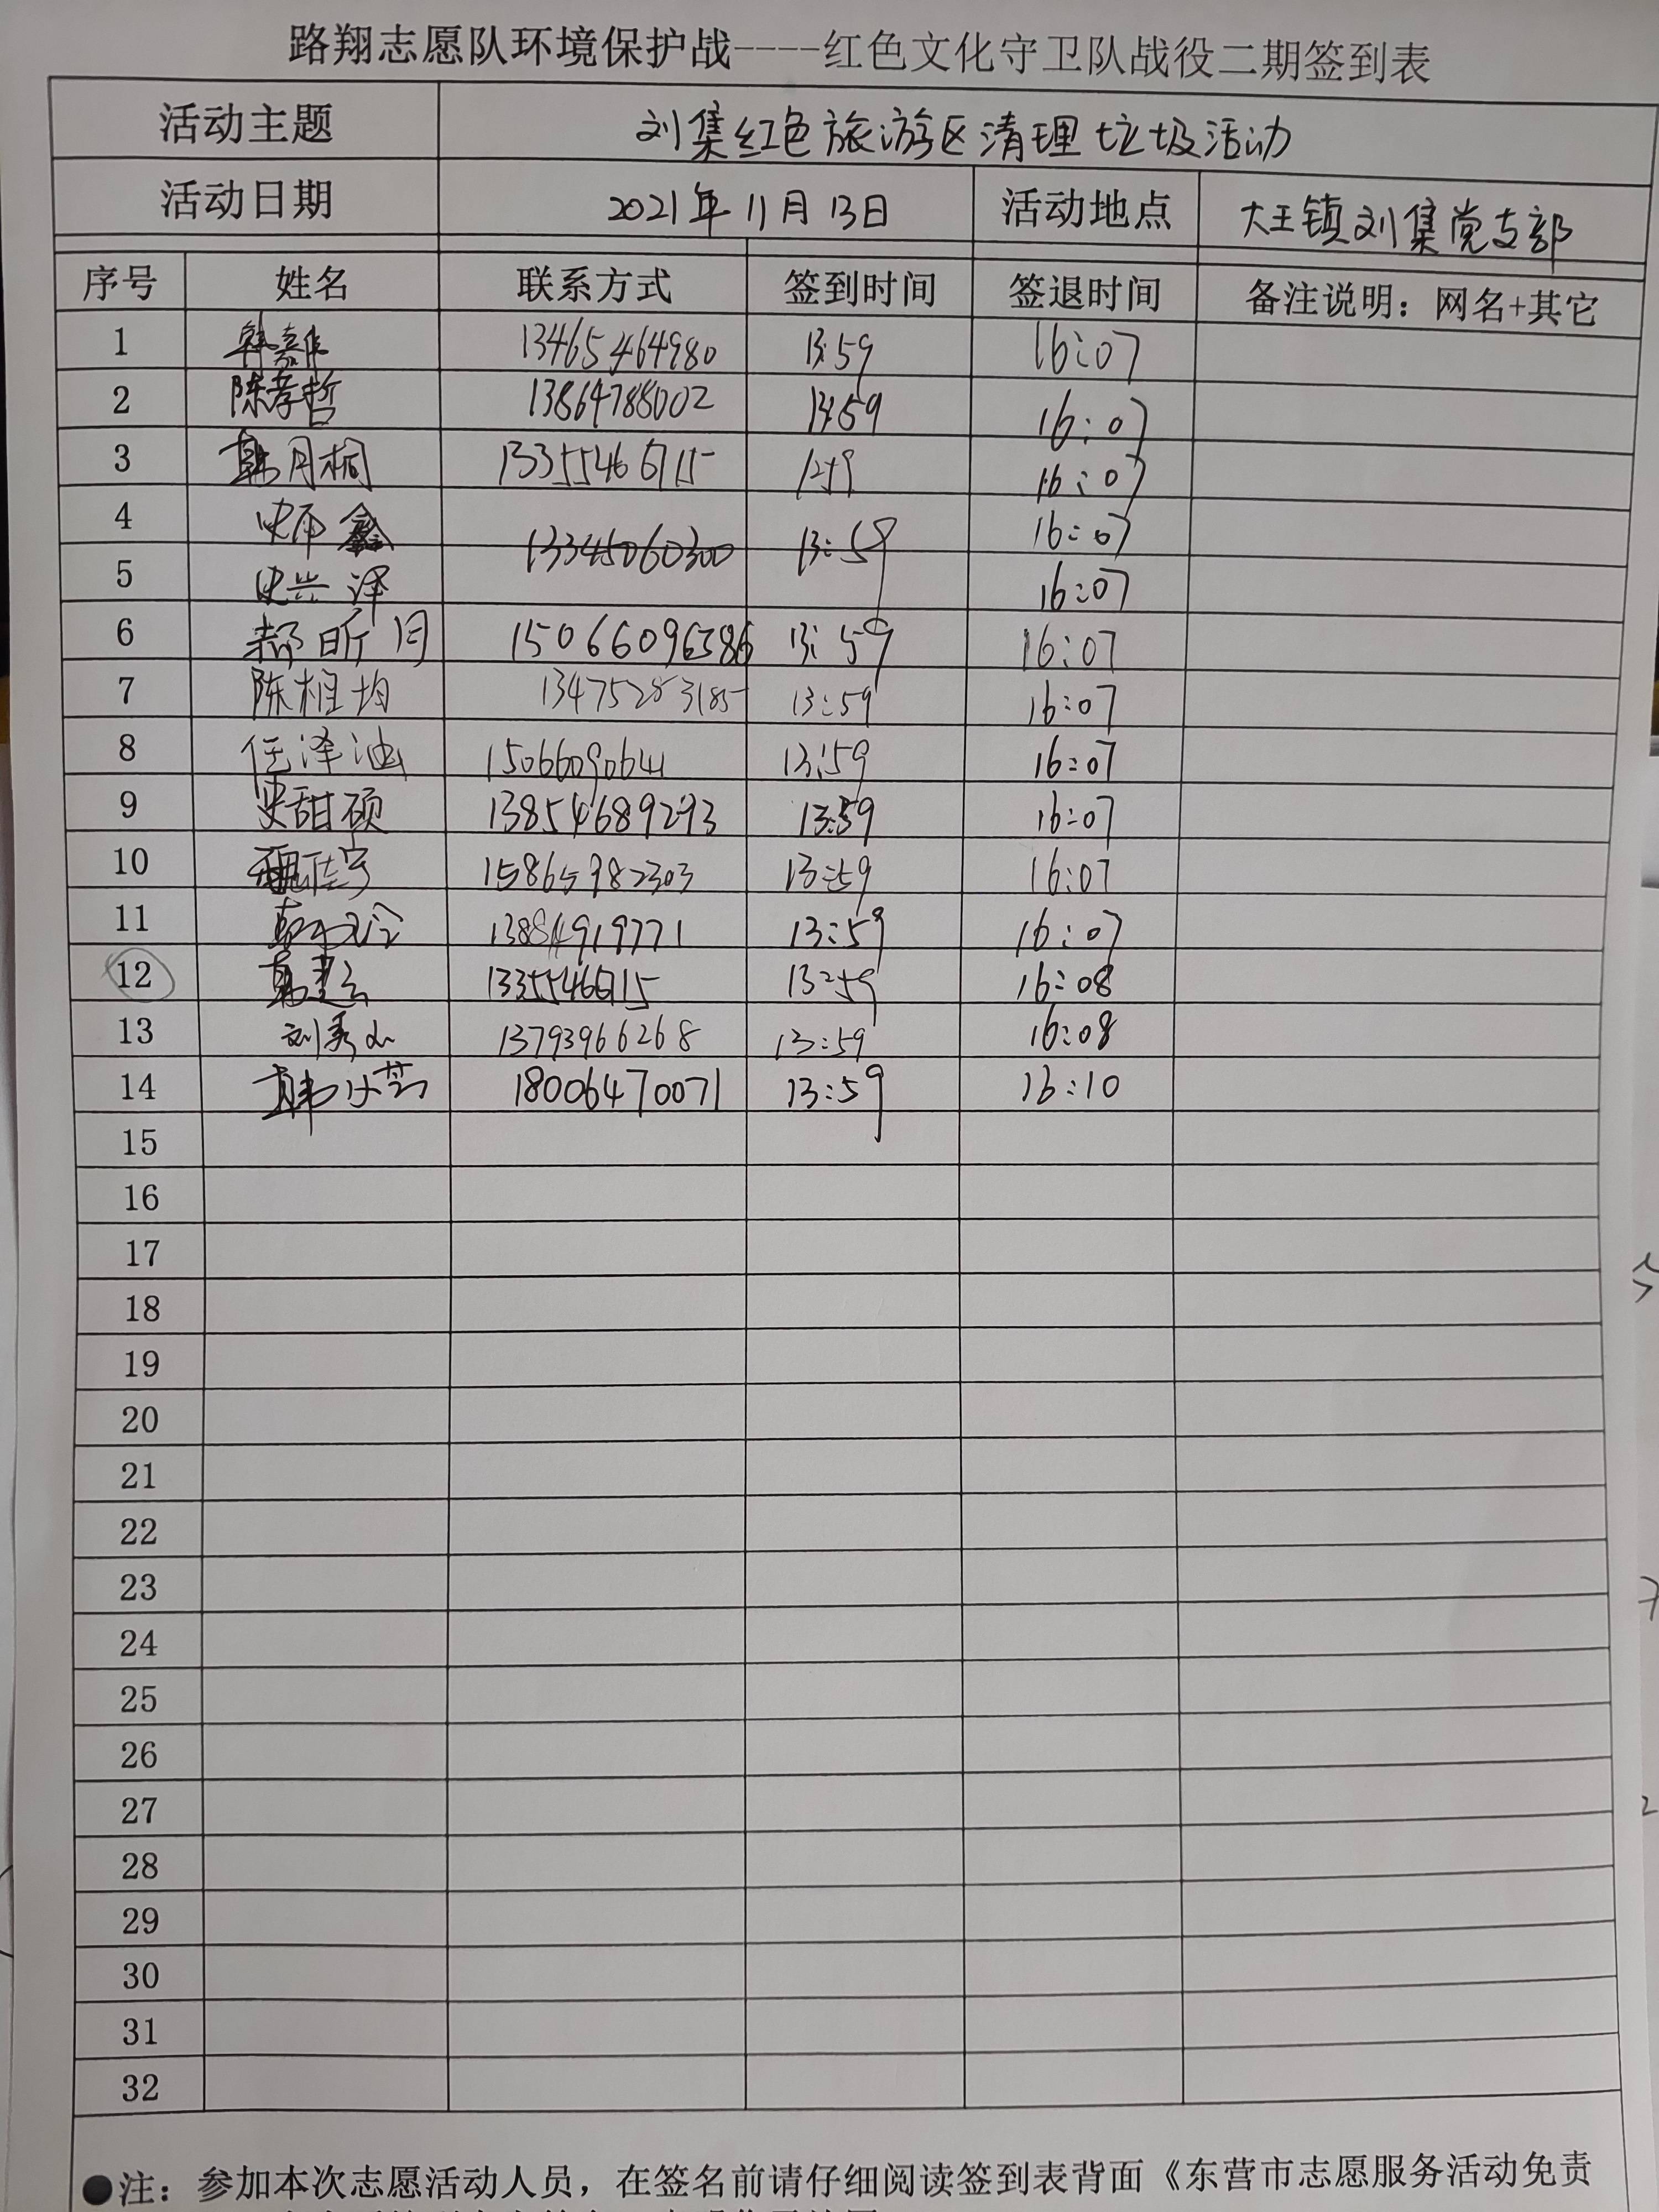 路翔志愿队环境保护战----红色文化守卫队战役二期签到表
活动主题 刘集红色旅游区清理垃圾活动
活动日期 2021年11月13日 活动地点 大王镇刘集党支部
序号 姓名 联系方式 签到时间 签退时间 备注说明：网名+其它
1 韩嘉伟 13465464980 13:59 16:07
2 陈孝哲 13864788002 13:59 16:07
3 韩月桐 13355466715 16:07
4 鑫 13345060300 13:59 16:07
5 史兴泽 16:07
6 郝昕月 15066096386 13:59 16:07
7 陈相均 13475283185 13:59 16:07
8 任泽 15066090641 13:59 16:07
9 史甜硕 13854689293 13:59 16:07
10 魏佳宇 15865982303 13:59 16:07
11 13:59 16:07
12 韩 13355466715 13:59 16:08
13 刘秀 13793966268 13:59 16:08
14 韩 18006470071 13:59 16:10
15
16
17
18
19
20
21
22
23
24
25
26
27
28
29
30
31
32
●注：参加本次志愿活动人员，在签名前请仔细阅读签到表背面《东营市志愿服务活动免责